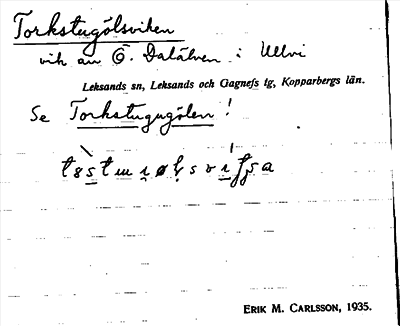 Torkstugölsviken
vik av Ö. Dalälven i Ullvi
Leksands sn, Leksands och Gagnefs tg, Kopparbergs län.
Se Torkstugugölen!
ERIK M. CARLSSON, 1935.